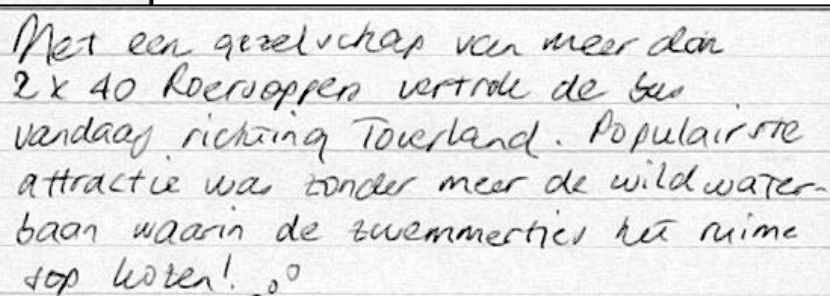 Met een gezelschap van meer dan
2 x 40 Roersoppers vertrok de bus
vandaag richting Toverland. Populairste
attractie was zonder meer de wildwater-
baan waarin de zwemmertjes het ruime
sop kozen!